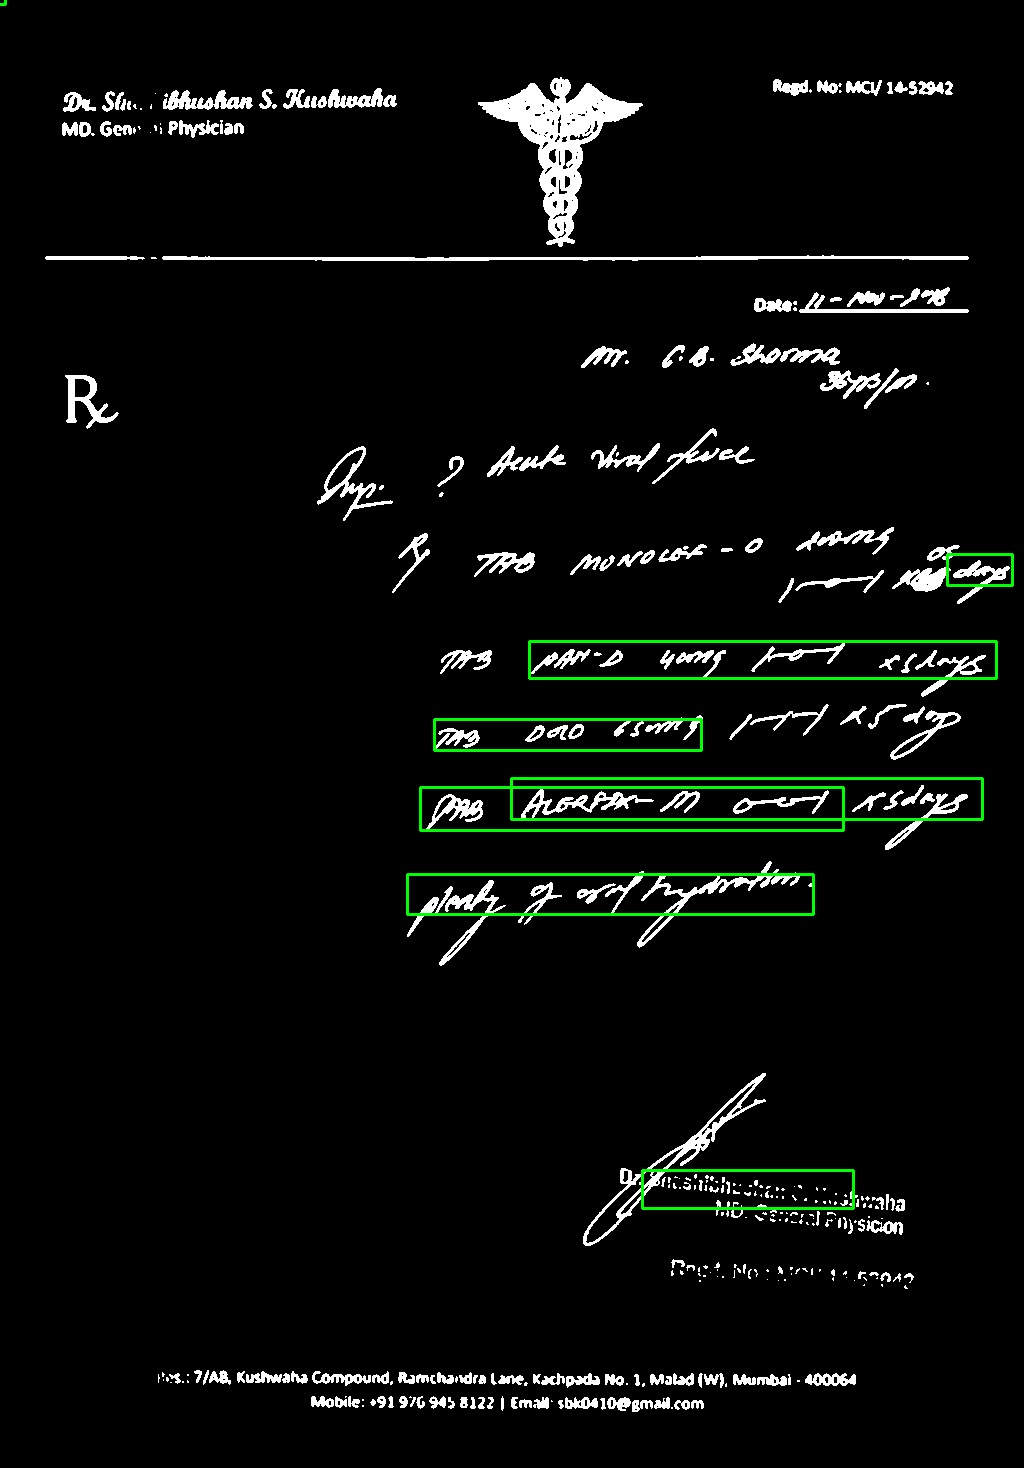 Dr. Shashibhushan S. Kushwaha
MD. General Physician
Regd. No: MCI/ 14-52942
Date: 11 - Nov - 2018
Mr. C.B. Sharma
36yrs/M.
Rx
Imp. ? Acute Viral fever
Rx TAB MONOCEF - O 200mg
1-0-1 x days
05
TAB PAN-D 40mg 1-0-1 x 5 days
TAB DOLO 650mg 1-1-1 x 5 days
TAB M 0-0-1 x 5 days
plenty of oral hydration.
Dr. Shashibhushan S. Kushwaha
MD. General Physicion
Regd. No.: MCI/ 14-52942
Res.: 7/AB, Kushwaha Compound, Ramchandra Lane, Kachpada No. 1, Malad (W), Mumbai - 400064
Mobile: +91 976 945 8122 | Email: sbk0410@gmail.com